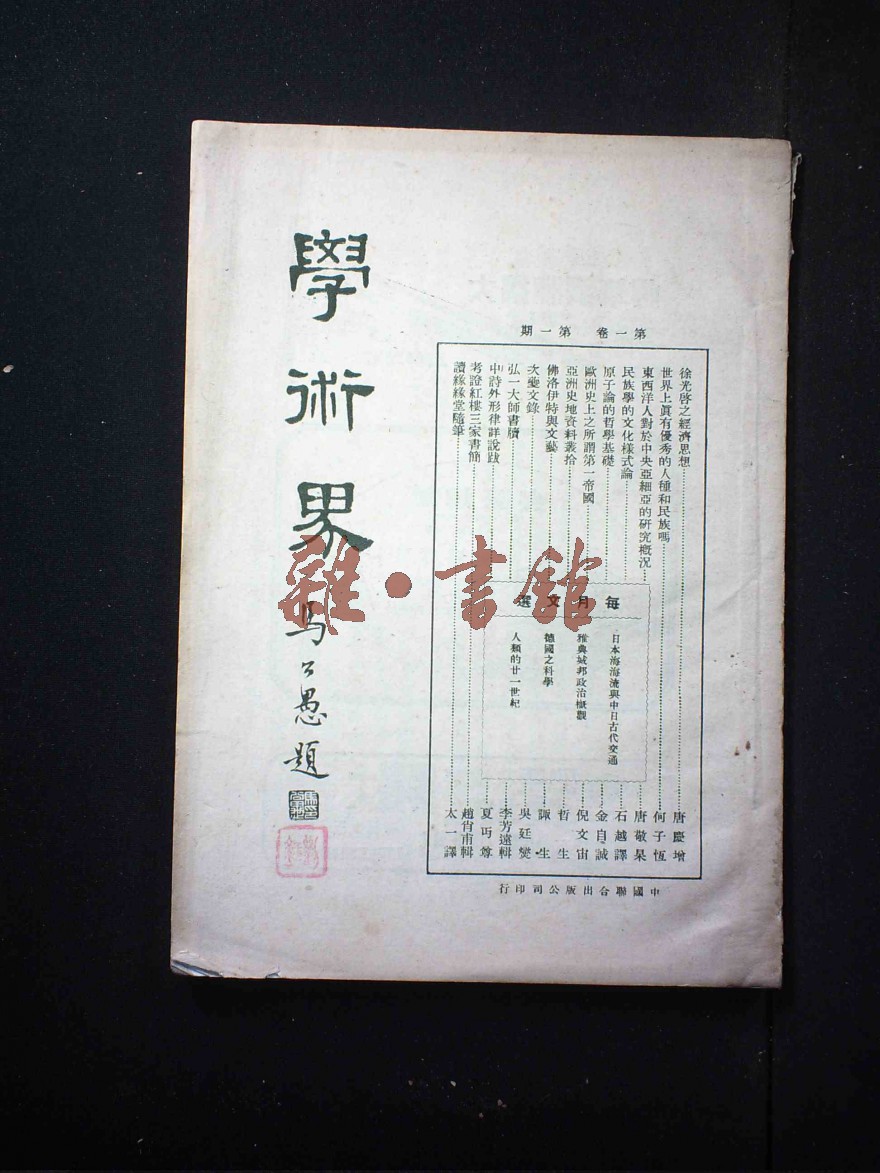 學術界
馬公愚題
第一卷 第一期
徐光啓之經濟思想
唐慶增
世界上眞有優秀的人種和民族嗎
何子恆
東西洋人對於中央亞細亞的研究概況
唐敬杲
民族學的文化樣式論
石越譯
原子論的哲學基礎
金自誠
歐洲史上之所謂第一帝國
倪文宙
亞洲史地資料叢拾
哲生
佛洛伊特與文藝
諏生
次燮文錄
吳廷燮
弘一大師書牘
李芳遠輯
中詩外形律詳說跋
夏丏尊
考證紅樓三家書簡
趙肖甫輯
讀緣緣堂隨筆
太一譯
每月文選
日本海海流與中日古代交通
雅典城邦政治概觀
德國之科學
人類的廿一世紀
中國聯合出版公司印行
雜·書館